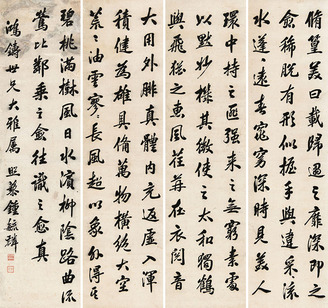 脩篁美曰載歸遇之匪深即之
愈稀脫有形似握手與違采采流
水蓬蓬遠春窈窕深谷時見美人
環中持之匪強來之無窮素處
以默妙機其微飲之太和獨鶴
與飛猶之惠風荏苒在衣閱音
大用外腓真體內充返虛入渾
積健為雄具備萬物橫絕太空
荒荒油雲寥寥長風超以象外得其
碧桃滿樹風日水濱柳陰路曲流
鶯比鄰乘之愈往識之愈真
鴻鑄世兄大雅属